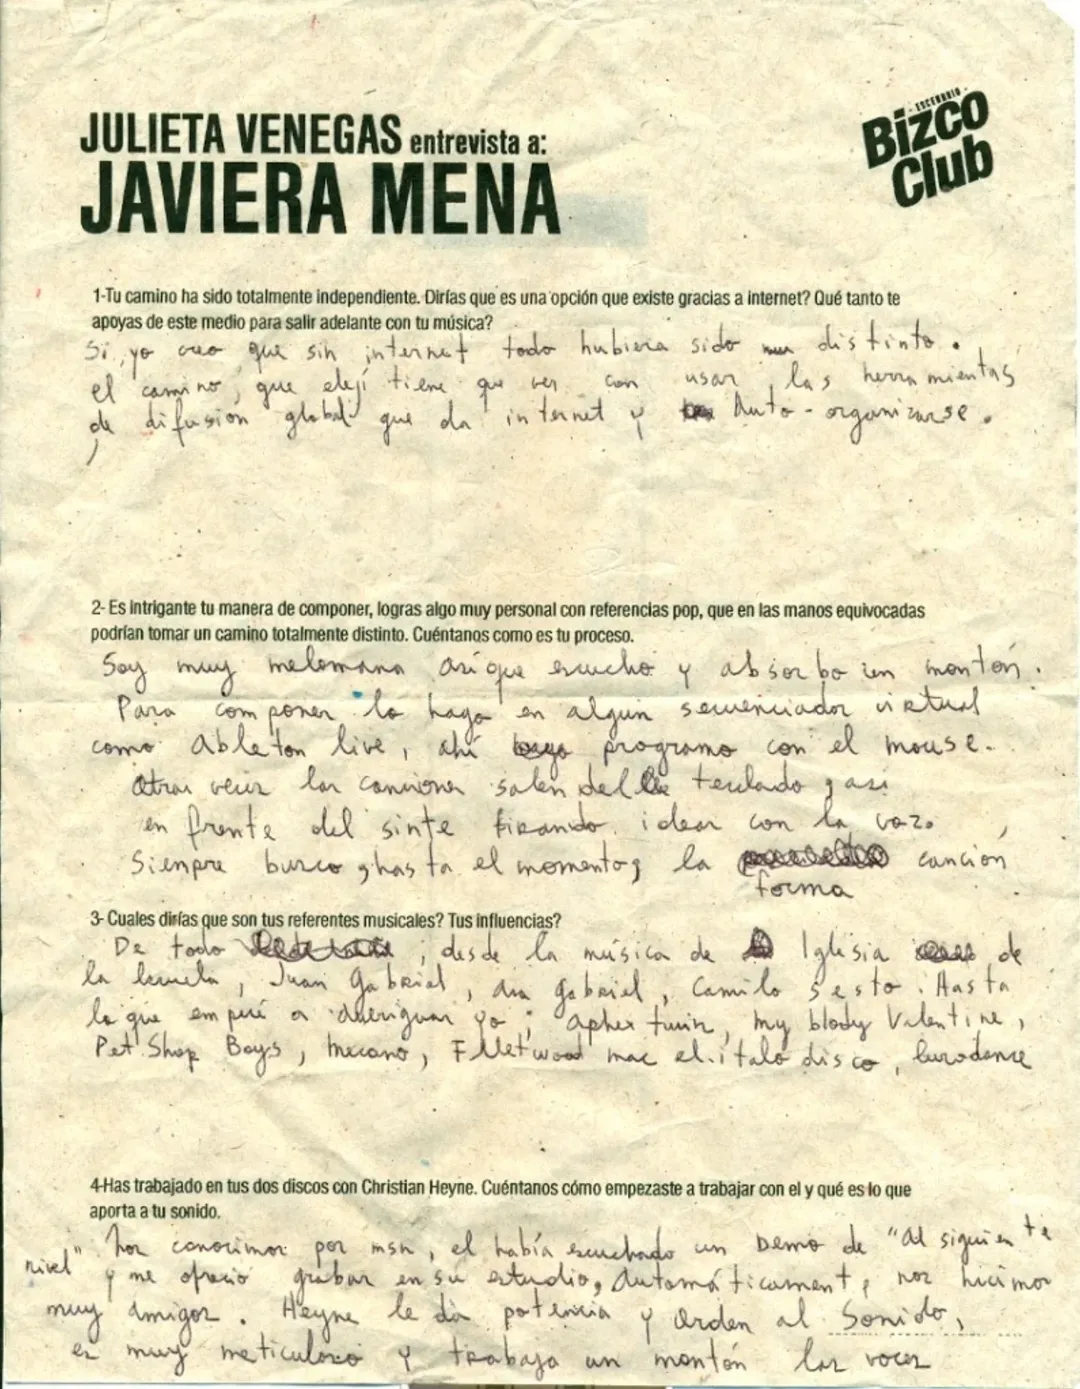 JULIETA VENEGAS entrevista a:
JAVIERA MENA
ESCENARIO
Bizco
Club
1-Tu camino ha sido totalmente independiente. Dirías que es una opción que existe gracias a internet? Qué tanto te
apoyas de este medio para salir adelante con tu música?
Si, yo creo que sin internet todo hubiera sido distinto.
el camino, que elejí tiene que ver con usar las herramientas
de difusion global que da internet y Auto-organizarse.
2- Es intrigante tu manera de componer, logras algo muy personal con referencias pop, que en las manos equivocadas
podrían tomar un camino totalmente distinto. Cuéntanos como es tu proceso.
Soy muy melomana asi que escucho y absorbo un montón.
Para componer lo hago en algun secuenciador virtual
como Ableton live, ahí programo con el mouse.
Otras veces las canciones salen del teclado y asi
en frente del sinte tirando ideas con la voz.
Siempre busco, hasta el momento, la canción
forma
3- Cuales dirías que son tus referentes musicales? Tus influencias?
De todo, desde la música de Iglesia de
la escuela, Juan Gabriel, Ana Gabriel, Camilo Sesto. Hasta
lo que empecé a averiguar yo; aphex twin, my blody Valentine,
Pet Shop Boys, mecano, Fleetwood mac el italo disco, Eurodance
4-Has trabajado en tus dos discos con Christian Heyne. Cuéntanos cómo empezaste a trabajar con el y qué es lo que
aporta a tu sonido.
nos conocimos por msn, el había escuchado un Demo de "Al siguiente
nivel" y me ofrecio grabar en su estudio, Automáticamente nos hicimos
muy amigos. Heyne le da potencia y Orden al Sonido,
es muy meticuloso y trabaja un montón las voces